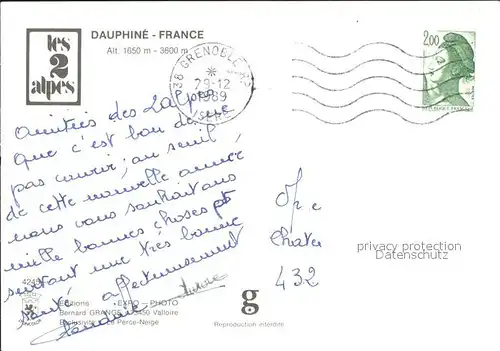 les
2
alpes
DAUPHINÉ - FRANCE
Alt. 1650 m - 3600 m
38 GRENOBLE R.P.
29-12
1989
ISERE
2,00
Amitiés des 2 alpes
que c'est bon de ne
pas courir, au seuil
de cette nouvelle année
nous vous souhaitons
mille bonnes choses et
surtout une très bonne
santé affectueusement
Editions "EXPO - PHOTO"
Bernard GRANGE - 73450 Valloire
Exclusivité "Le Perce-Neige"
g
Reproduction interdite
432
privacy protection
OldthingShops